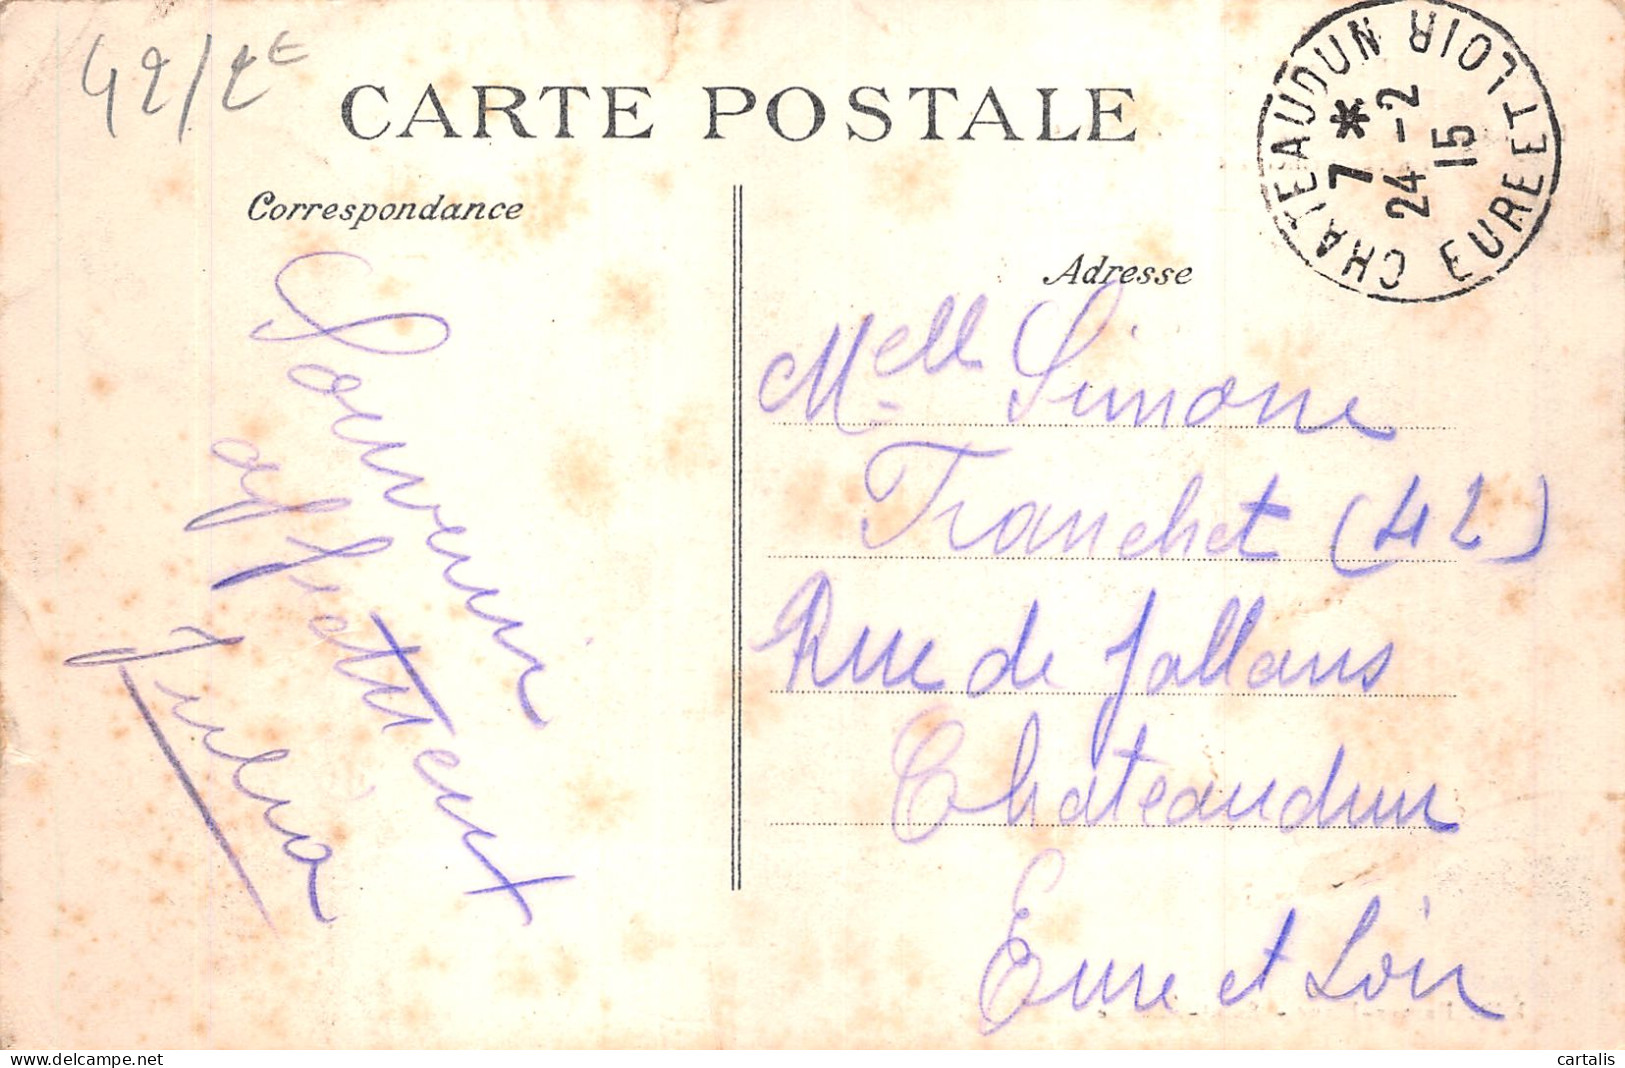 42/2E
CARTE POSTALE
CHATEAUDUN EURE ET LOIR
7 *
24 -2
15
Correspondance
Souvenir
affectueux
Julia
Adresse
Melle Simone
Tranchet (42)
Rue de Jallans
Chateaudun
Eure et Loir
delcampe.net
cartalis